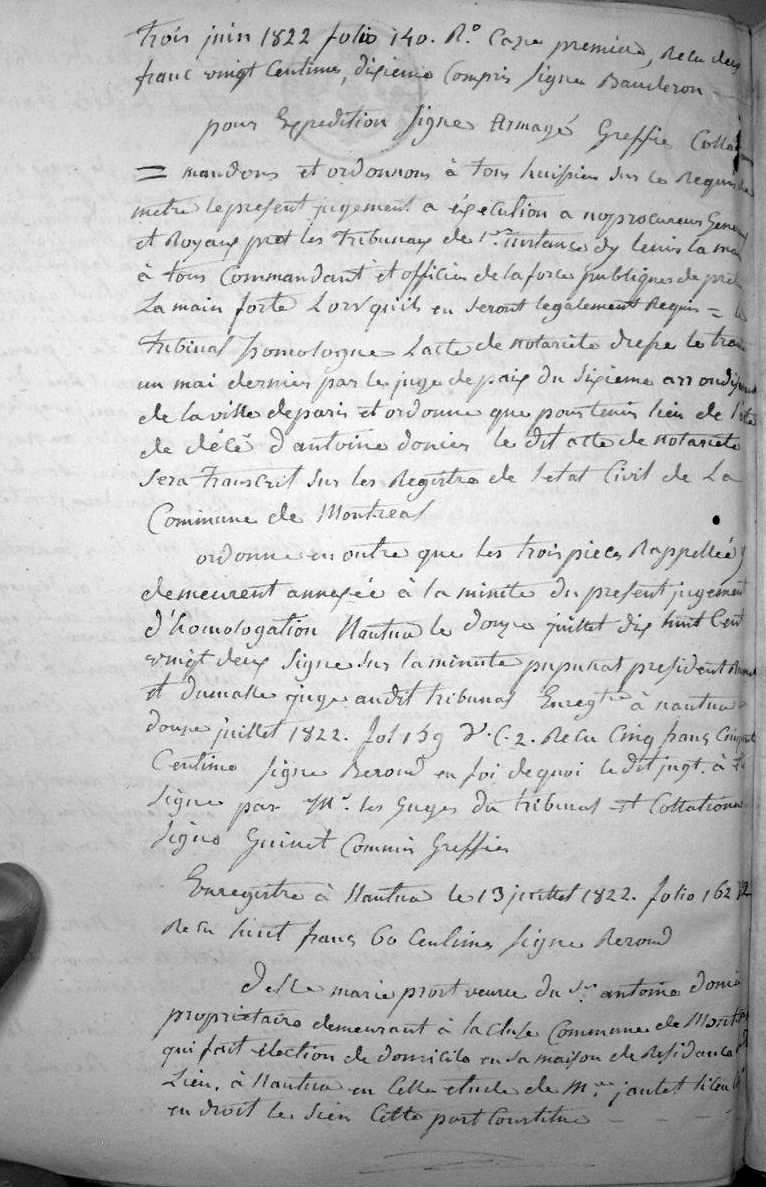 trois juin 1822 folio 140. R.° Caze premiere, Recu deux
franc vingt Centimes, dixieme Compris signe Bauderon
pour Expedition signe Armagé Greffie
= mandons et ordonnons à tous huissier sur ce Requis de
metre le present jugement a éxecution a nos procureurs Generau
et Royaux pret les tribunaux de 1.re instance dy tenir la main
à tous Commandant et officier de la force publiques de preter
La main forte Lorsquils en seront legalement Requis = le
tribunal homologue Lacte de notarieté dressé le trante
un mai dernier par le juge de paix du sixieme arrondissement
de la ville de paris et ordonne que pour tenir lieu de lacte
de décé d'antoine donier le dit acte de notarieté
sera transcrit sur les Registre de letat Civil de La
Commune de Montreal
ordonne en outre que les trois pieces Rappellées
demeurent annexée à la minite du present jugement
d'homologation Nantua le douze juillet dix huit Cent
vingt deux signe sur la minute president
et juge audit tribunal Enregtre à nantua le
douze juillet 1822. fol 159 V.C.2. Recu Cinq franc Cinquante
Centime signe Beroud en foi de quoi le dit jugt. à été
signe par Mr. les Guges du tribunal et Collationé
signe Guinet Commis Greffier
Enregistre à Nantua le 13 juillet 1822. folio 162
Recu huit franc 60 Centimes signe Beroud
delle marie prost veuve du Sr. antoine donier
propriétaire demeurant à la cluse Commune de Montreal
qui fait élection de domicile en sa maison de Residance
Lieu. à Nantua en Celle etude de Me. jantet
en droit le sien Cette part Constitué